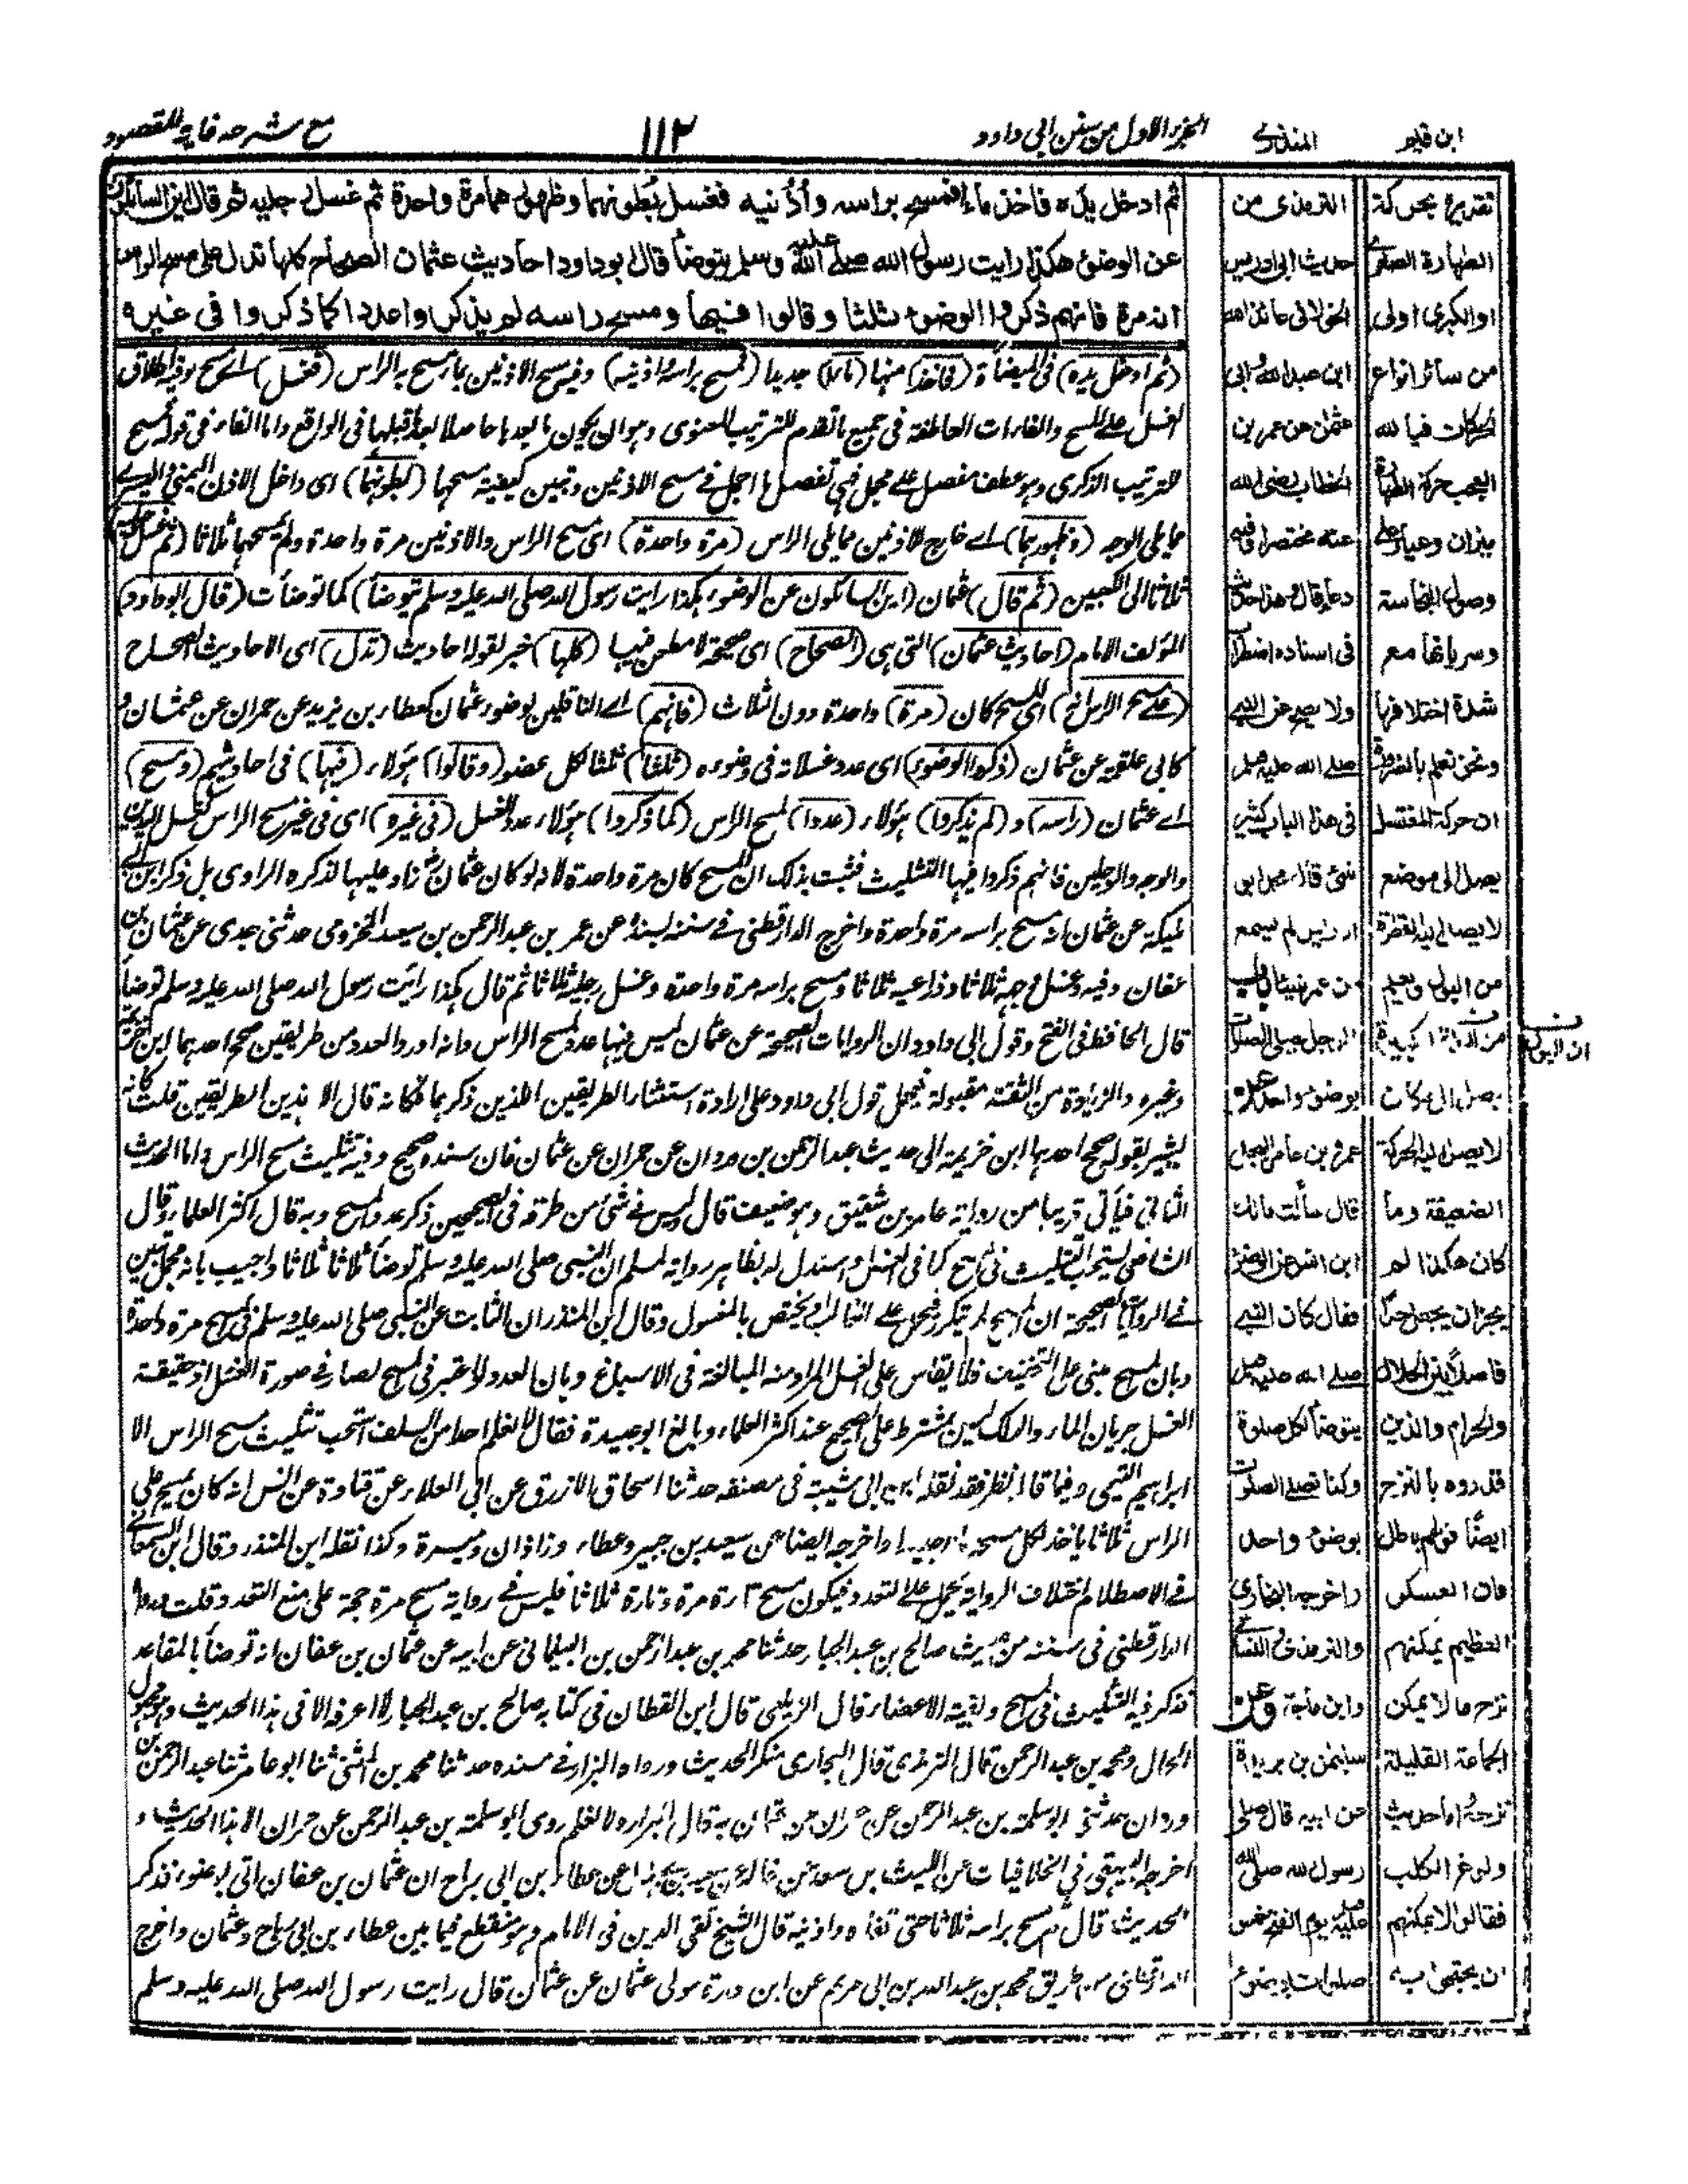 ابن قيم
المنذرى
الجزء الاول من سنن ابى داود
١١٢
مع شرحه غاية المقصود
ثم ادخل يده فاخذ ماء فمسح براسه وأذنيه فغسل بطونهما وظهورهما مرة واحدة ثم غسل رجليه ثم قال اين السائلون
عن الوضوء هكذا رايت رسول الله صلى الله عليه وسلم يتوضأ قال ابو داود احاديث عثمان الصحاح كلها تدل على مسح الراس
انه مرة فانهم ذكروا الوضوء ثلثا وقالوا فيها ومسح راسه لم يذكروا عددا كما ذكروا فى غيره
(ثم ادخل يده) فى الميضأة (فاخذ) منها (ماء) جديدا (فمسح براسه واذنيه) وفيه مسح الاذنين بماء مسح به الراس (فغسل) اى مسح وفيه اطلاق
الغسل على المسح والفاءات العاطفة فى جميع ما تقدم للترتيب المعنوى وهو ان يكون ما بعدها حاصلا بعد ما قبلها فى الواقع واما الفاء فى قوله فمسح
للترتيب الذكرى وهو عطف مفصل على مجمل فهى تفصل ما اجمل فى مسح الاذنين وتبين كيفية مسحها (بطونهما) اى داخل الاذن اليمنى واليسرى
مما يلى الوجه (وظهورهما) اى خارج الاذنين مما يلى الراس (مرة واحدة) اى مسح الراس والاذنين مرة واحدة ولم يمسحها ثلاثا (ثم غسل رجليه)
ثلاثا الى الكعبين (ثم قال) عثمان (اين السائلون عن الوضوء هكذا رايت رسول الله صلى الله عليه وسلم يتوضأ) كما توضأت (قال ابو داود)
المؤلف الامام (احاديث عثمان) التى هى (الصحاح) اى صحيحة لا مطعن فيها (كلها) خبر لقوله احاديث (تدل) اى الاحاديث الصحاح
(على مسح الراس انه) اى المسح كان (مرة) واحدة دون الثلاث (فانهم) اى الناقلين لوضوء عثمان كعطاء بن يزيد عن حمران عن عثمان و
كابى علقمة عن عثمان (ذكروا الوضوء) اى عدد غسلاته فى وضوءه (ثلثا) ثلثا لكل عضو (وقالوا) هؤلاء (فيها) فى احاديثهم (ومسح)
اى عثمان (راسه) و (لم يذكروا) هؤلاء (عددا) لمسح الراس (كما ذكروا) هؤلاء عدد الغسل (فى غيره) اى فى غير مسح الراس كغسل اليدين
والوجه والرجلين فانهم ذكروا فيها التثليث فثبت بذلك ان المسح كان مرة واحدة لانه لو كان عثمان زاد عليها لذكره الراوى بل ذكر ابن ابى
مليكة عن عثمان انه مسح براسه مرة واحدة واخرج الدارقطنى فى سننه بسنده عن عمر بن عبد الرحمن بن سعيد المخزومى حدثنى جدى عن عثمان بن
عفان وفيه وغسل وجهه ثلاثا وذراعيه ثلاثا ومسح براسه مرة واحدة وغسل رجليه ثلاثا ثم قال هكذا رأيت رسول الله صلى الله عليه وسلم توضأ
قال الحافظ فى الفتح وقول ابى داود ان الروايات الصحيحة عن عثمان ليس فيها عدد لمسح الراس وانه اورد العدد من طريقين صحح احدهما ابن خزيمة
وغيره والزيادة من الثقة مقبولة فيحمل قول ابى داود على ارادة استثناء الطريقين اللذين ذكرهما فكانه قال الا هذين الطريقين قلت كانه
يشير بقوله صحح احدهما ابن خزيمة الى حديث عبد الرحمن بن وردان عن حمران عن عثمان فان سنده صحيح وفيه تثليث مسح الراس واما الحديث
الثانى فيأتى قريبا من رواية عامر بن شقيق وهو ضعيف قال ليس فى شئ من طرقه فى الصحيحين ذكر عدد المسح وبه قال اكثر العلماء وقال
الشافعى يستحب التثليث فى المسح كما فى الغسل واستدل له بظاهر رواية لمسلم ان النبى صلى الله عليه وسلم توضأ ثلاثا ثلاثا واجيب بانه مجمل تبين
فى الروايات الصحيحة ان المسح لم يتكرر فيحمل على الغالب او يختص بالمغسول وقال ابن المنذر ان الثابت عن النبى صلى الله عليه وسلم فى المسح مرة واحدة
وبان المسح مبنى على التخفيف فلا يقاس على الغسل المراد منه المبالغة فى الاسباغ وبان العدد لو اعتبر فى المسح لصار فى صورة الغسل اذ حقيقة
الغسل جريان الماء والدلك ليس بمشترط على الصحيح عند اكثر العلماء وبالغ ابو عبيدة فقال لا نعلم احدا من السلف استحب تثليث مسح الراس الا
ابراهيم التيمى وفيما قاله نظر فقد نقله ابن ابى شيبة فى مصنفه حدثنا اسحاق الازرق عن ابى العلاء عن قتادة عن انس انه كان يمسح على
الراس ثلاثا ياخذ لكل مسحه ماء جديدا واخرجه ايضا عن سعيد بن جبير وعطاء وزاذان وميسرة وكذا نقله ابن المنذر وقال ابن السمعانى
فى الاصطلام اختلاف الرواية يحمل على التعدد فيكون مسح تارة مرة وتارة ثلاثا فليس فى رواية مسح مرة حجة على منع التعدد قلت
الدارقطنى فى سننه من حديث صالح بن عبد الجبار حدثنا محمد بن عبد الرحمن بن البيلمانى عن ابيه عن عثمان بن عفان انه توضأ بالمقاعد
فذكر فيه التثليث فى المسح وبقية الاعضاء قال الزيلعى قال ابن القطان فى كتابه صالح بن عبد الجبار لا اعرفه الا فى هذا الحديث وهو مجهول
الحال ومحمد بن عبد الرحمن قال الترمذى قال البخارى منكر الحديث ورواه البزار فى مسنده حدثنا محمد بن المثنى ثنا ابو عامر ثنا عبد الرحمن بن
وردان حدثنى ابو سلمة بن عبد الرحمن عن حمران عن عثمان به قال البزار ولا نعلم روى ابو سلمة بن عبد الرحمن عن حمران الا هذا الحديث و
اخرجه البيهقى فى الخلافيات عن الليث بن سعد عن خالد عن سعيد بن ابى هلال عن عطاء بن ابى رباح ان عثمان بن عفان اتى بوضوء فذكر
الحديث قال ثم مسح براسه ثلاثا حتى قفاه واذنيه قال الشيخ تقى الدين فى الامام وهو منقطع فيما بين عطاء بن ابى رباح وعثمان واخرج
الدارقطنى من طريق محمد بن عبد الله بن ابى مريم عن ابن دارة مولى عثمان عن عثمان قال رايت رسول الله صلى الله عليه وسلم
الترمذى من
حديث ابى ادريس
الخولانى عائذ الله
ابن عبد الله وابى
عثمن عن عمر بن
الخطاب رضى الله
عنه مختصرا فيه
دعاء وقال هذا حديث
فى اسناده اضطراب
ولا يصح عن النبى
صلى الله عليه وسلم
فى هذا الباب كثير
شئ قال محمد ابو
ادريس لم يسمع
من عمر شيئا باب
الرجل يصلى الصلوات
بوضوء واحد عن
عمرو بن عامر البجلى
قال سألت مالك
ابن انس عن الوضوء
فقال كان النبى
صلى الله عليه وسلم
يتوضأ لكل صلوة
وكنا نصلى الصلوات
بوضوء واحد
واخرجه البخارى
والترمذى والنسائى
وابن ماجة وعن
سليمن بن بريدة
عن ابيه قال صلى
رسول الله صلى الله
عليه يوم الفتح خمس
صلوات بوضوء
تقديره بحركة
الطهارة الصغرى
او الكبرى اولى
من سائر انواع
الحركات فيا لله
العجب حركة الطهارة
ميزان وعيار على
وصول النجاسة
وسريانها مع
شدة اختلافها
ونحن نعلم بالضرورة
ان حركة المغتسل
يصل الى موضع
لا يصل اليه القطرة
من البول ونعلم
يصل الى مكان
لا يصل اليه الحركة
الضعيفة وما
كان هكذا لم
يجز ان يجعل حدا
فاصلا بين الحلال
والحرام والذين
قدروه بالنزح
ايضا قولهم باطل
فان العسكر
العظيم يمكنهم
نزح ما لا يمكن
الجماعة القليلة
نزحه واما حديث
ولوغ الكلب
فقالوا لا يمكنهم
ان يحتجوا به
ن
ان البول